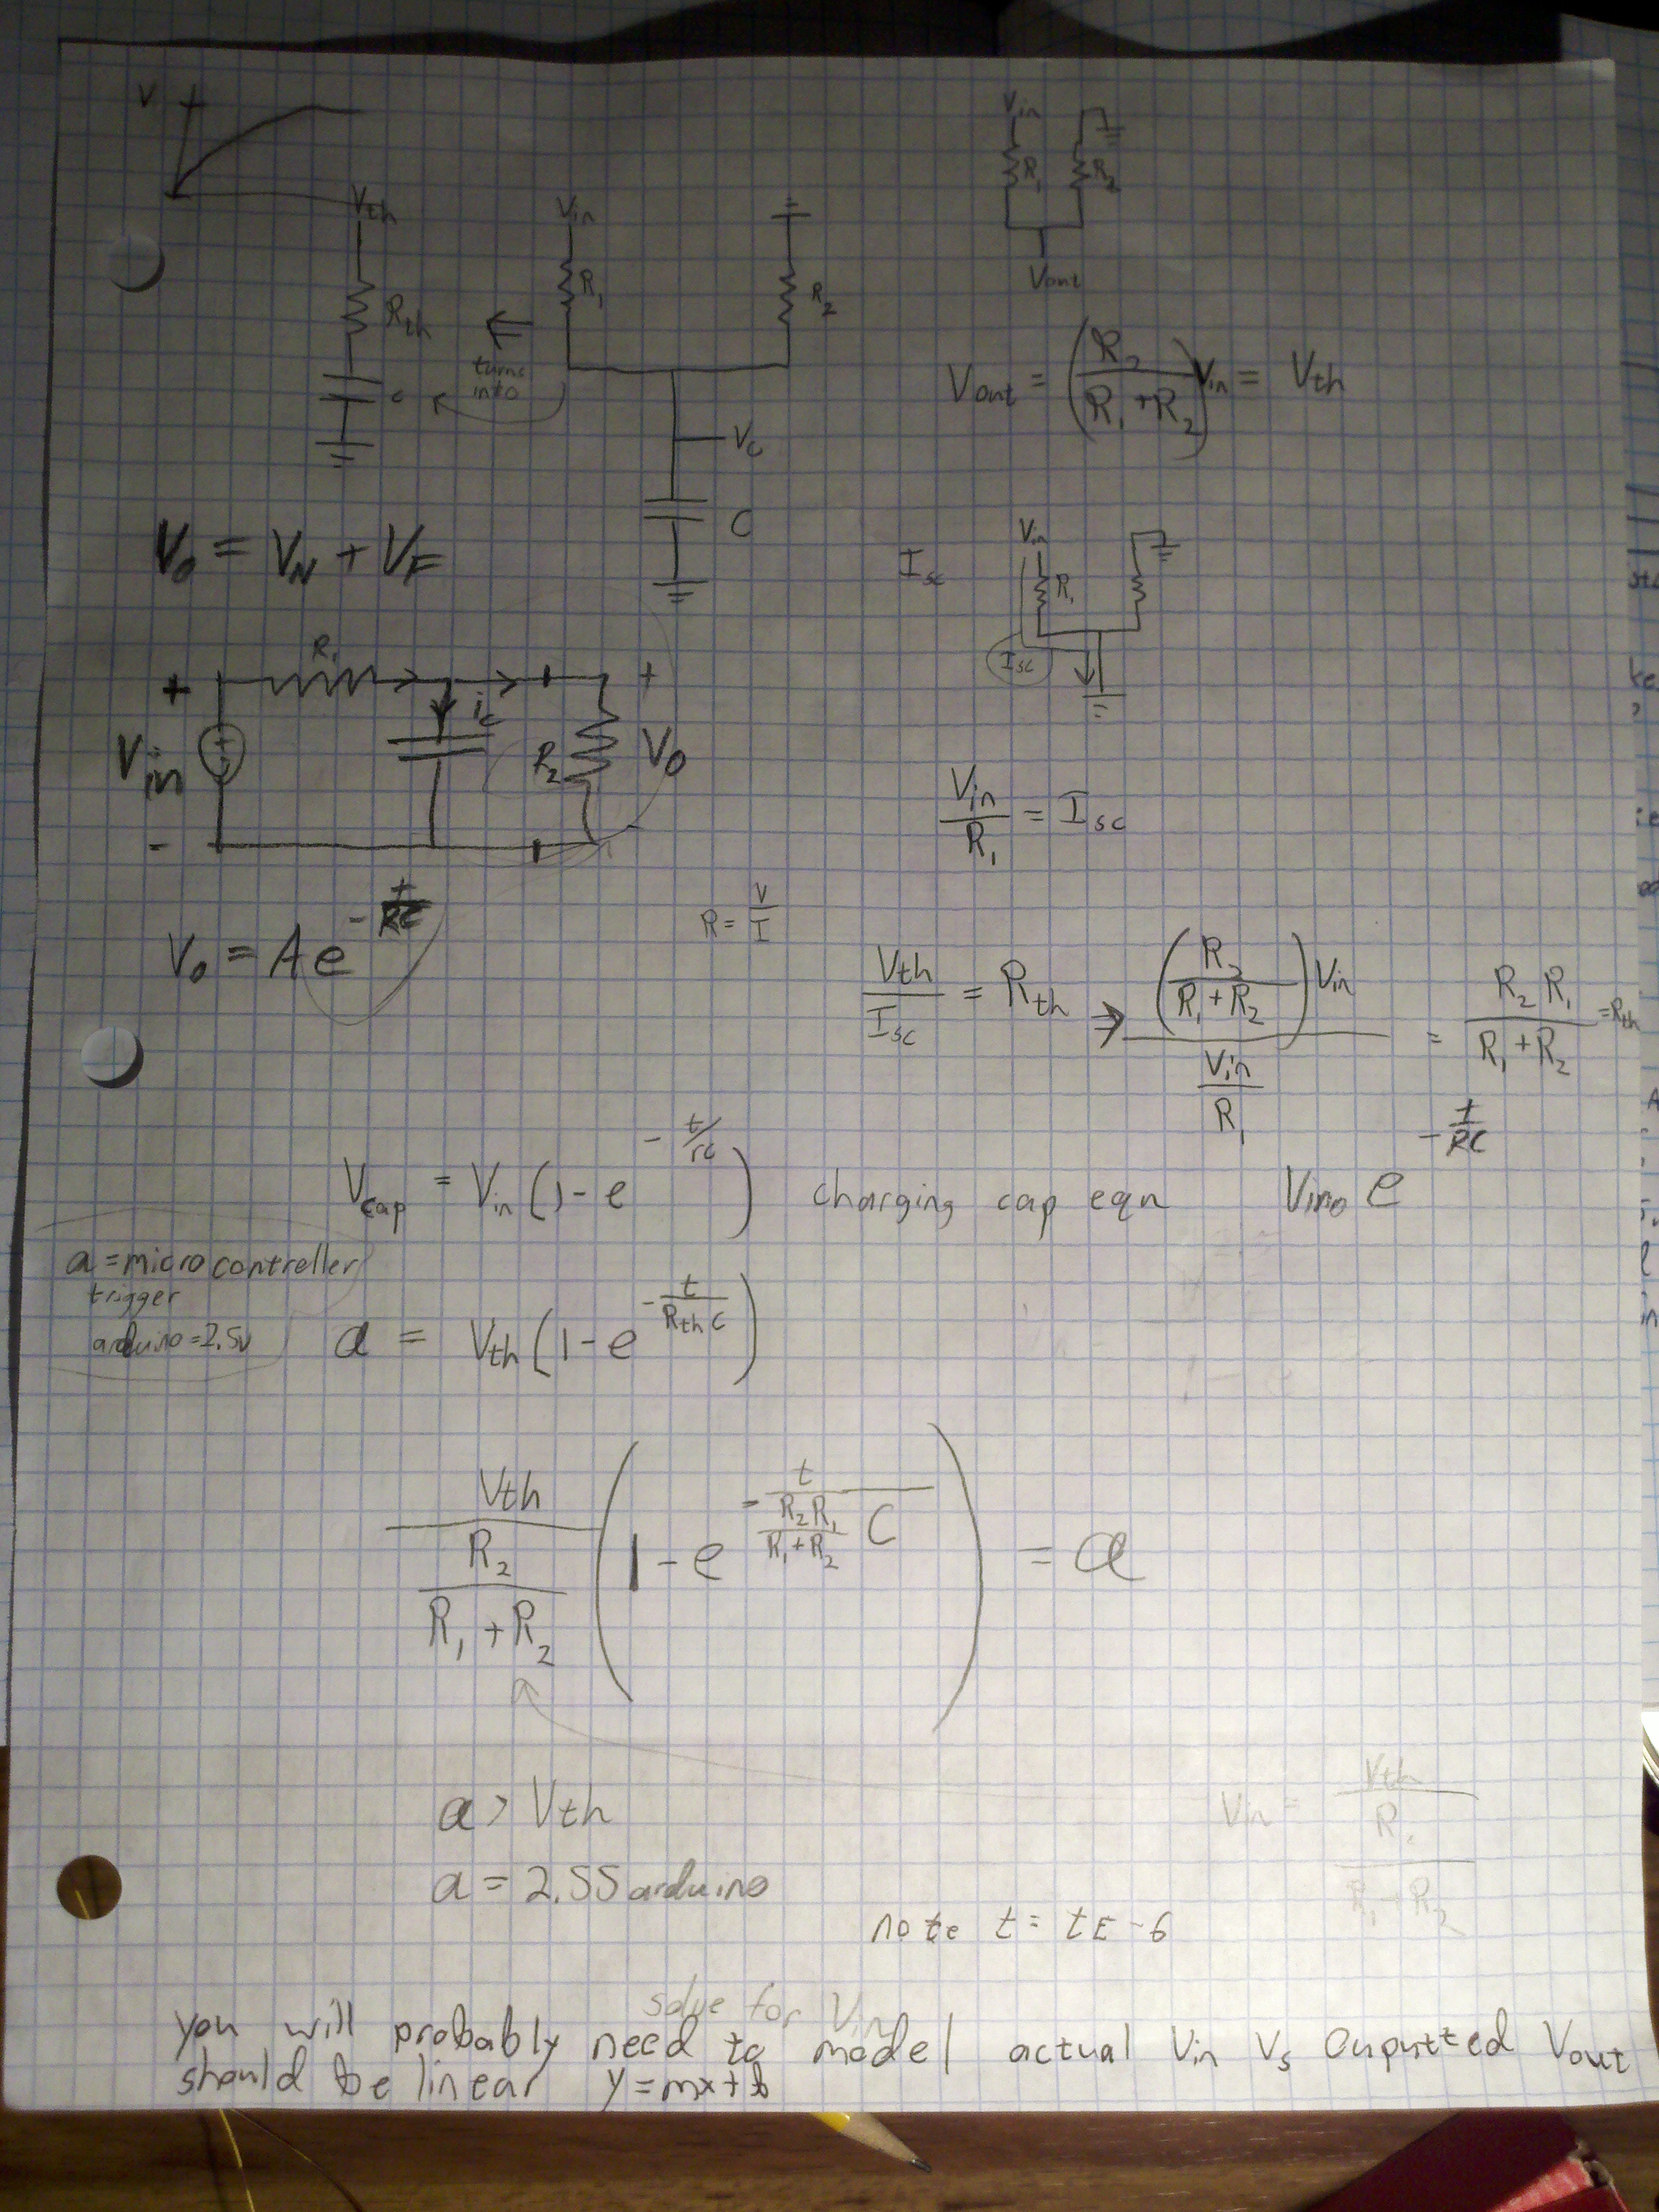 V
Vth
Rth
C
turns
into
Vin
R₁
R₂
Vc
C
Vin
R₁
R₂
Vout
Vout = (R₂/(R₁+R₂)) Vin = Vth
V₀ = VN + VF
Isc
Vin
R₁
Isc
R₁
+
Vin
-
ic
R₂
+
V₀
-
Vin/R₁ = Isc
V₀ = A e^(-t/RC)
R = V/I
Vth/Isc = Rth ⇒ ((R₂/(R₁+R₂)) Vin)/(Vin/R₁) = R₂R₁/(R₁+R₂) = Rth
Vcap = Vin (1 - e^(-t/rc)) charging cap eqn
e^(-t/RC)
a = microcontroller
trigger
arduino = 2.5v
a = Vth (1 - e^(-t/(Rth C)))
Vth/(R₂/(R₁+R₂)) (1 - e^(-t/((R₂R₁/(R₁+R₂)) C))) = a
a > Vth
Vin = Vth/(R₂/(R₁+R₂))
a = 2.55 arduino
note t = tE-6
solve for Vin
you will probably need to model actual Vin Vs Ouputted Vout
should be linear y=mx+b